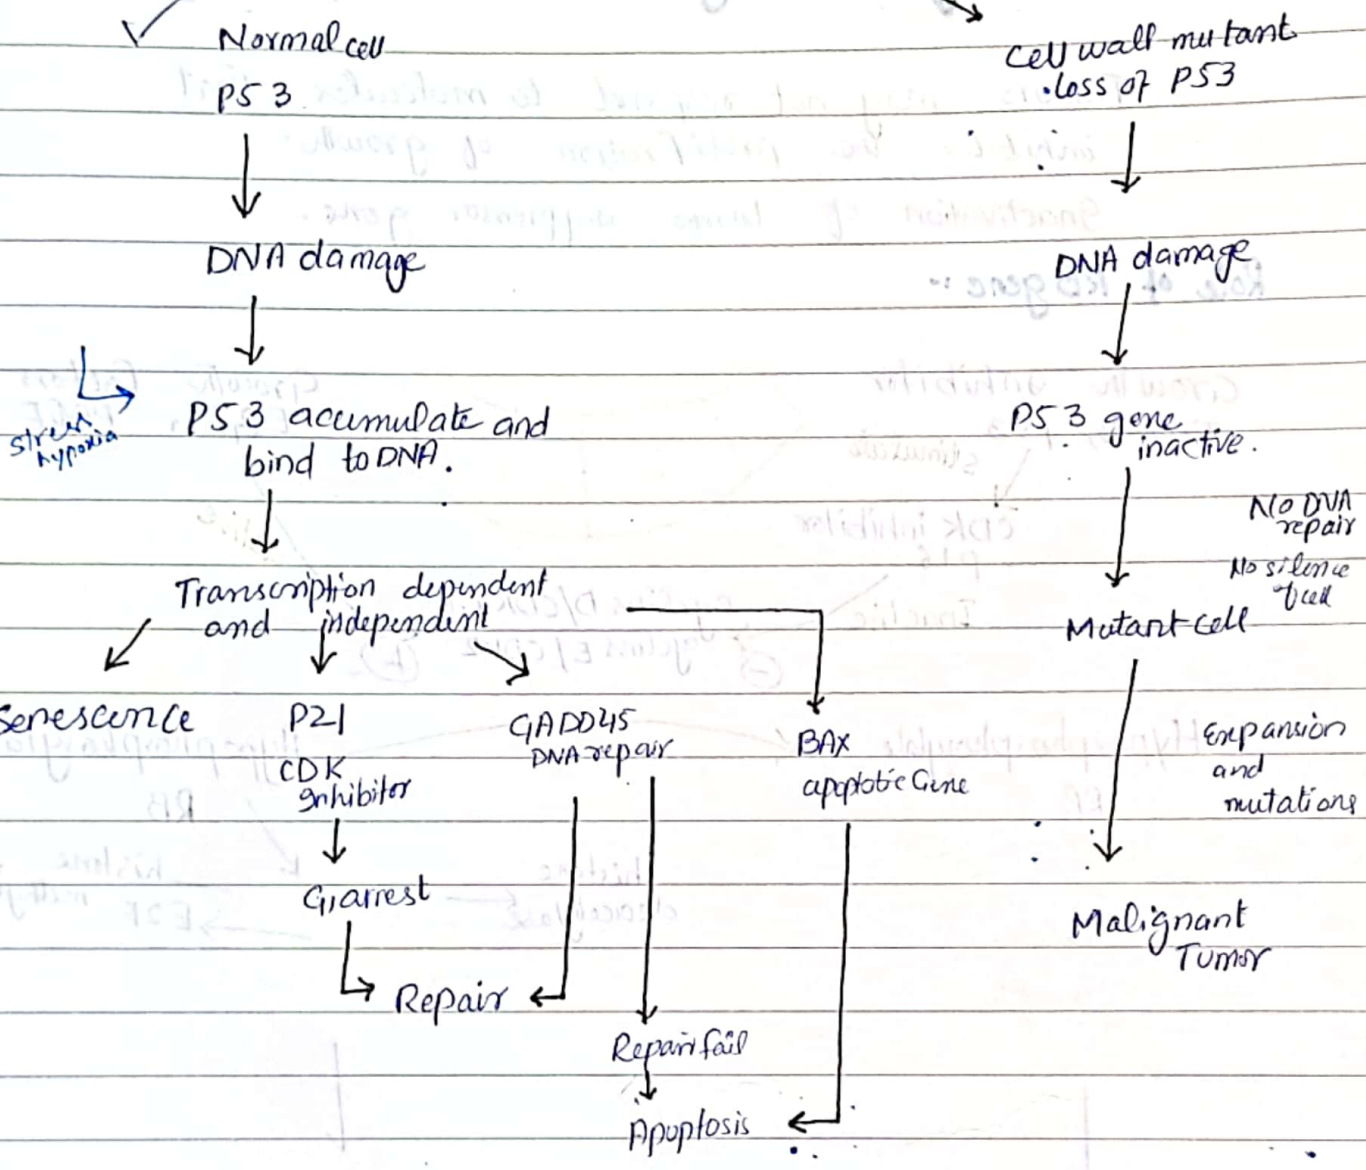 Normal cell
P53
DNA damage
Stress
hypoxia
P53 accumulate and
bind to DNA.
Transcription dependent
and independent
Senescence
P21
CDK
Inhibitor
G1 arrest
GADD45
DNA repair
BAX
apoptotic Gene
Repair
Repair fail
Apoptosis
Cell wall mutant
loss of P53
DNA damage
P53 gene
inactive.
No DNA
repair
No silence
of cell
Mutant cell
Expansion
and
mutations
Malignant
Tumor